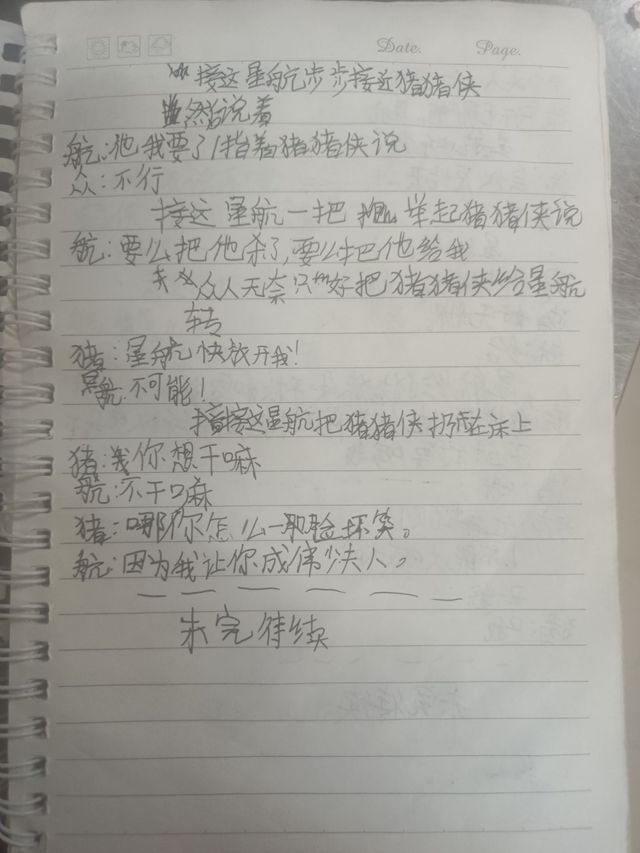 Date. Page.
接这星航步步接近猪猪侠
然后说着
航:他我要了/指着猪猪侠说
众:不行
接这星航一把举起猪猪侠说
航:要么把他杀了,要么把他给我
众人无奈只好把猪猪侠给星航
转
猪:星航快放开我!
航:不可能!
接这星航把猪猪侠扔在床上
猪:你想干嘛
航:不干嘛
猪:哪你怎么一脸坏笑。
航:因为我让你成伟少夫人。
未完待续